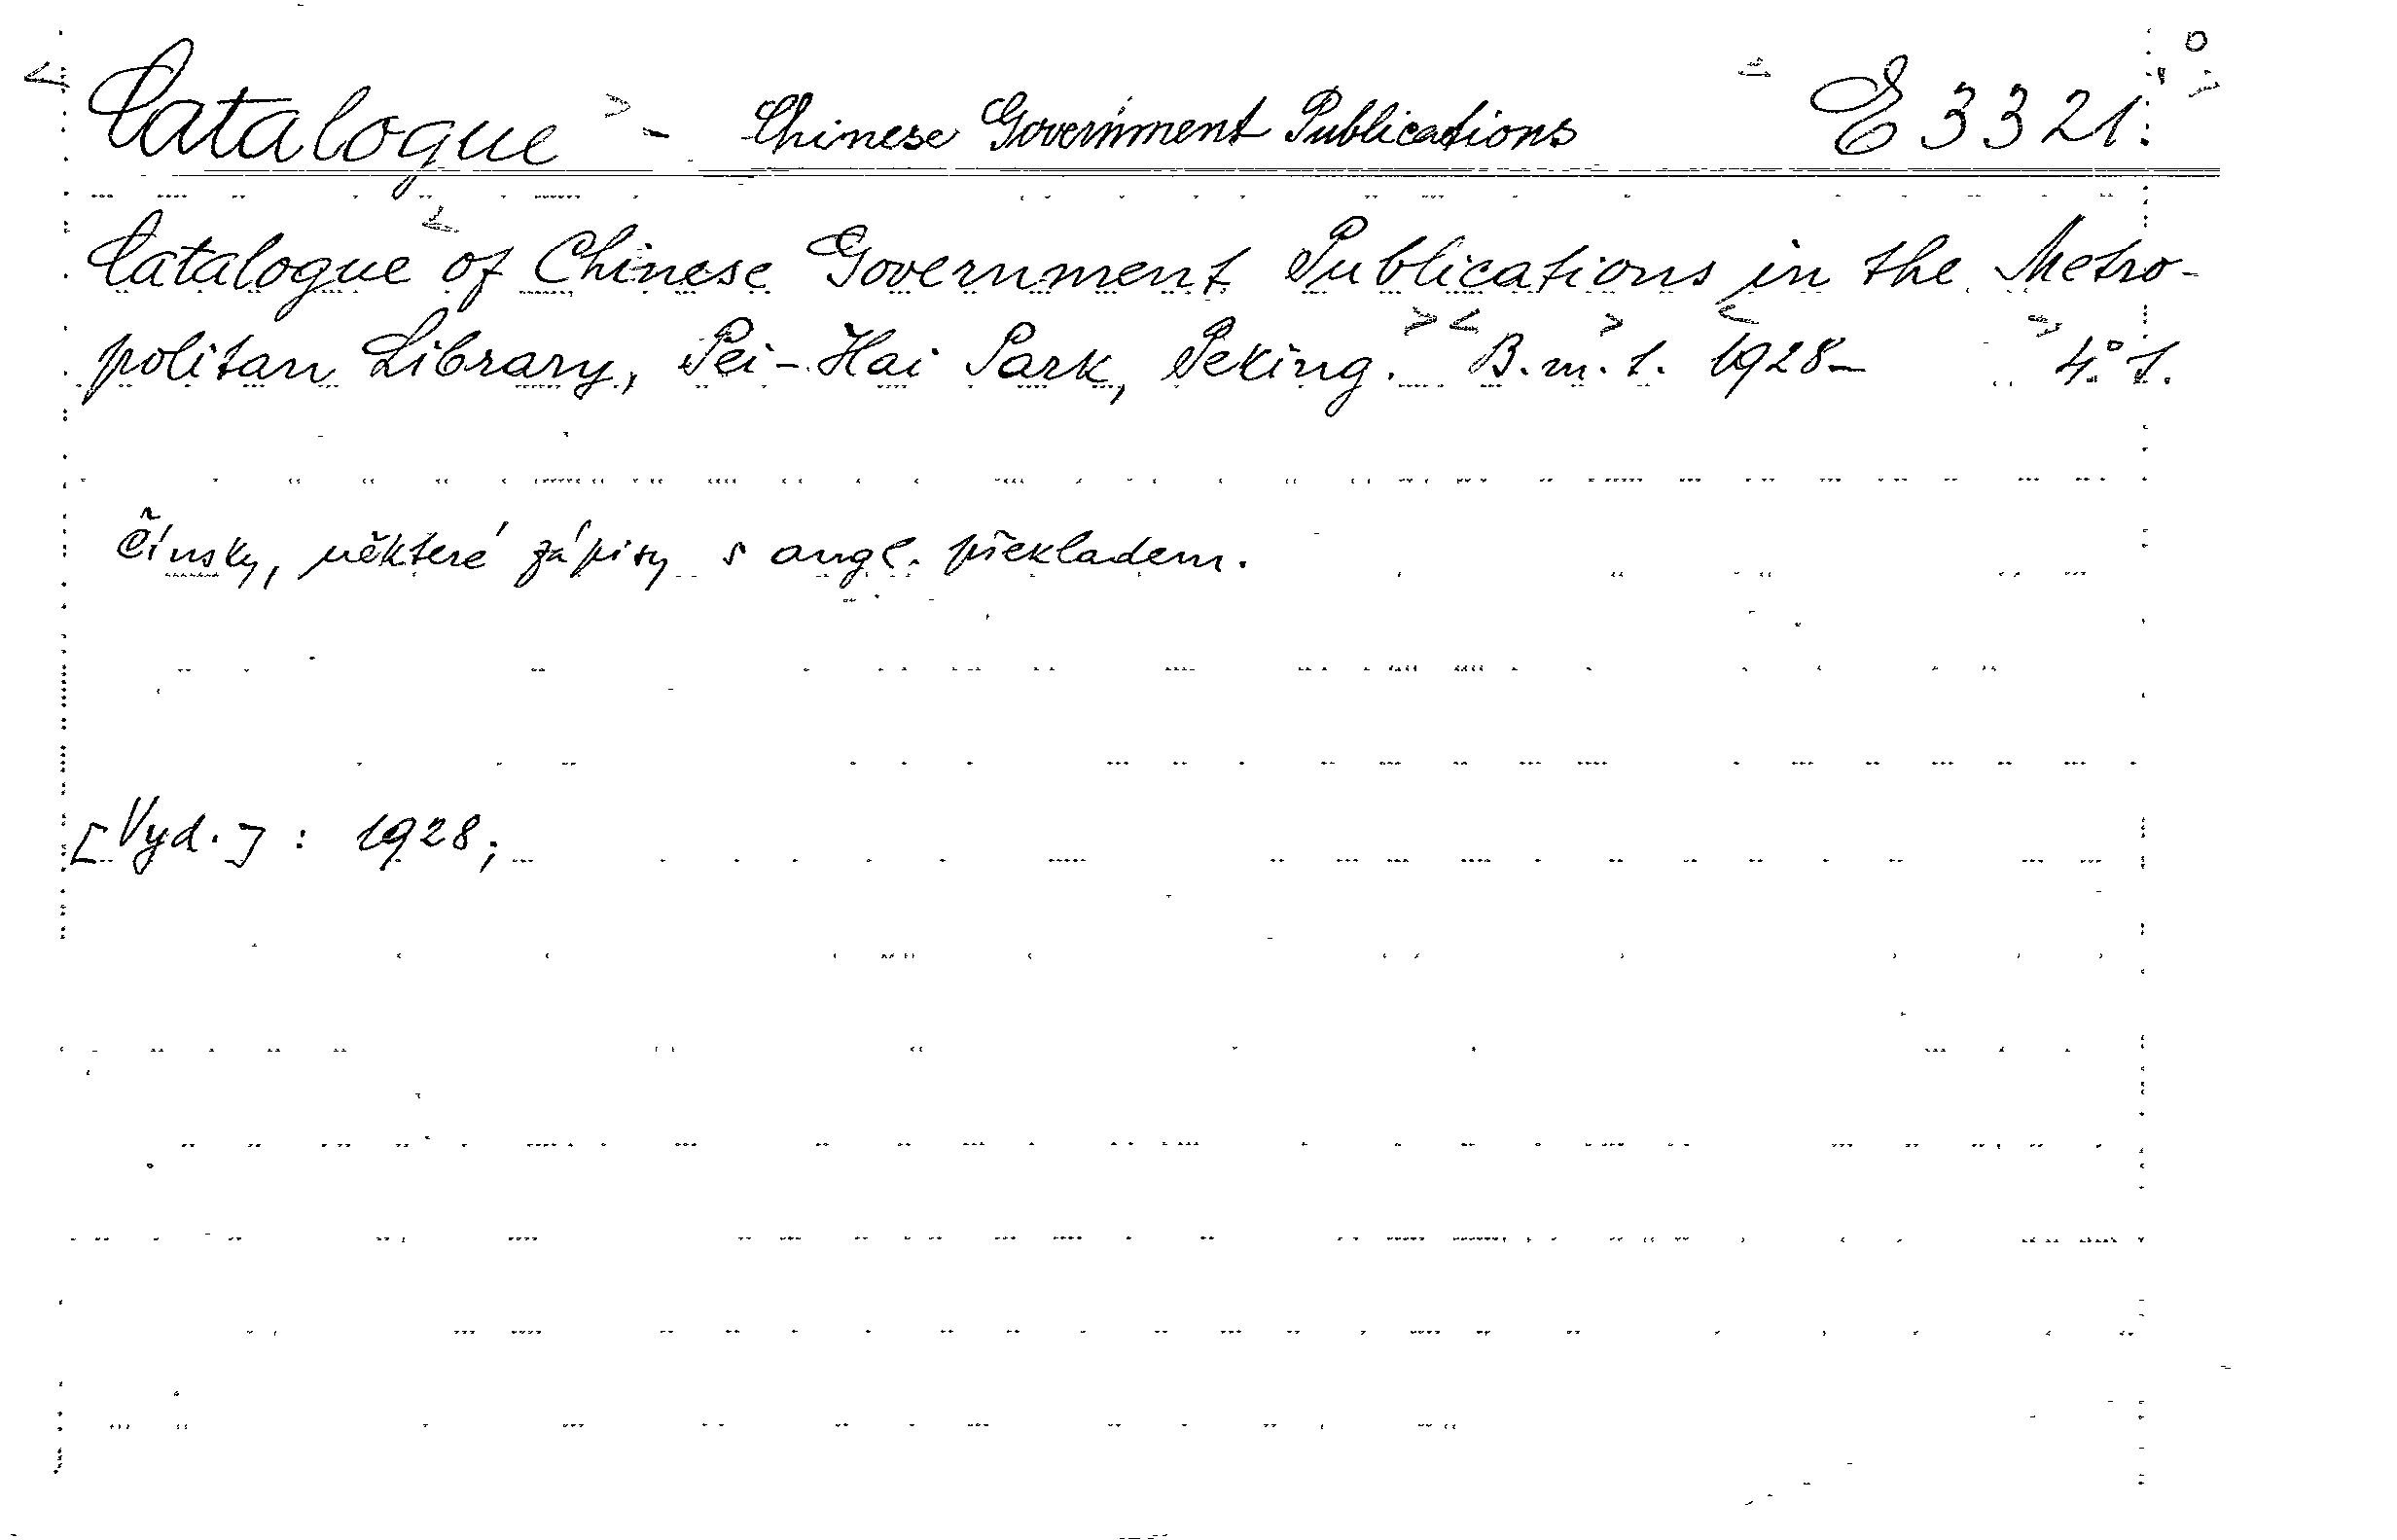 Catalogue - Chinese Government Publications E 3321.
Catalogue of Chinese Government Publications in the Metro-
politan Library, Pei-Hai Park, Peking. B.m.t. 1928- 4°. t.
Čínsky, některé zápisy s angl. překladem.
[Vyd.] : 1928;